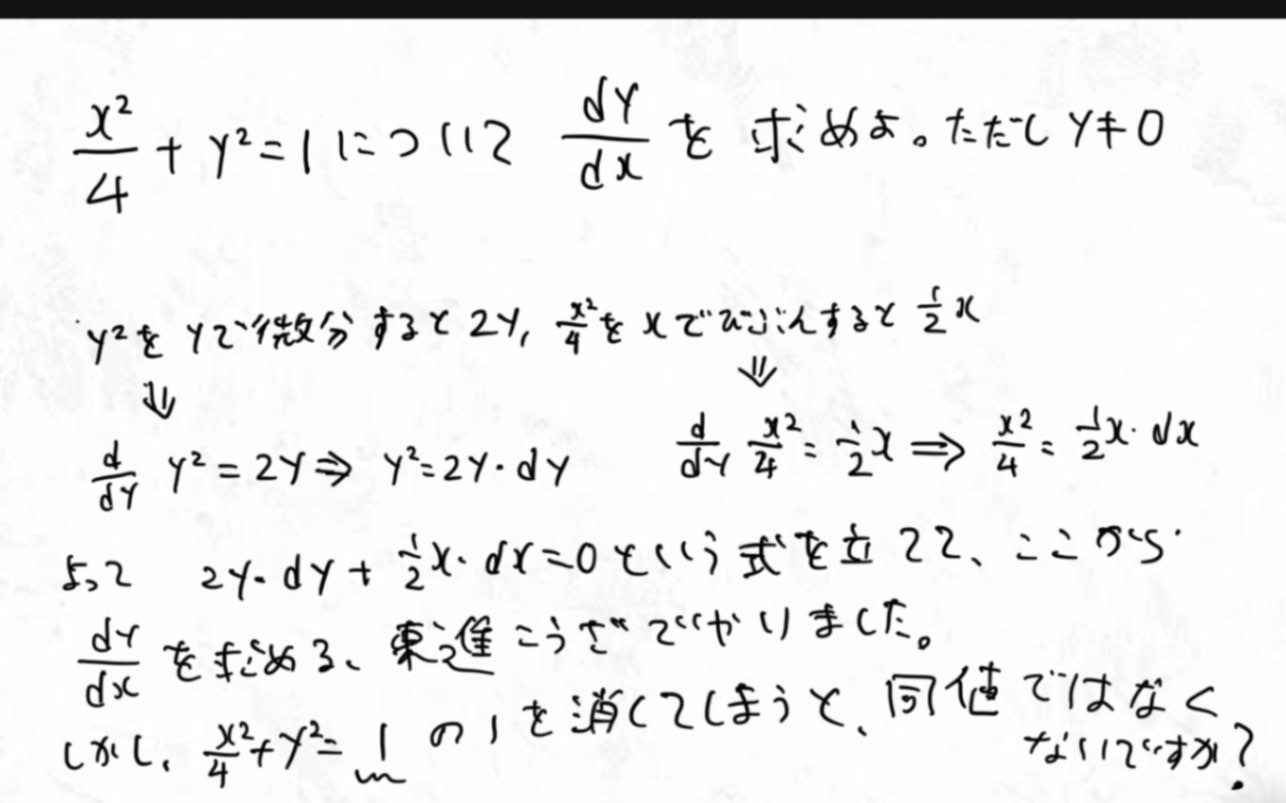 x²/4 + y² = 1 について dy/dx を求めよ。ただし y≠0
y²をyで微分すると2y, x²/4をxでびぶんすると 1/2 x
⇓ ⇓
d/dy y² = 2y ⇒ y² = 2y・dy d/dy x²/4 = 1/2 x ⇒ x²/4 = 1/2 x・dx
よって 2y・dy + 1/2 x・dx = 0 という式を立てて、ここから
dy/dx を求める、東進こうざでやりました。
しかし、x²/4 + y² = 1 の 1 を消してしまうと、同値ではなく
ないですか?